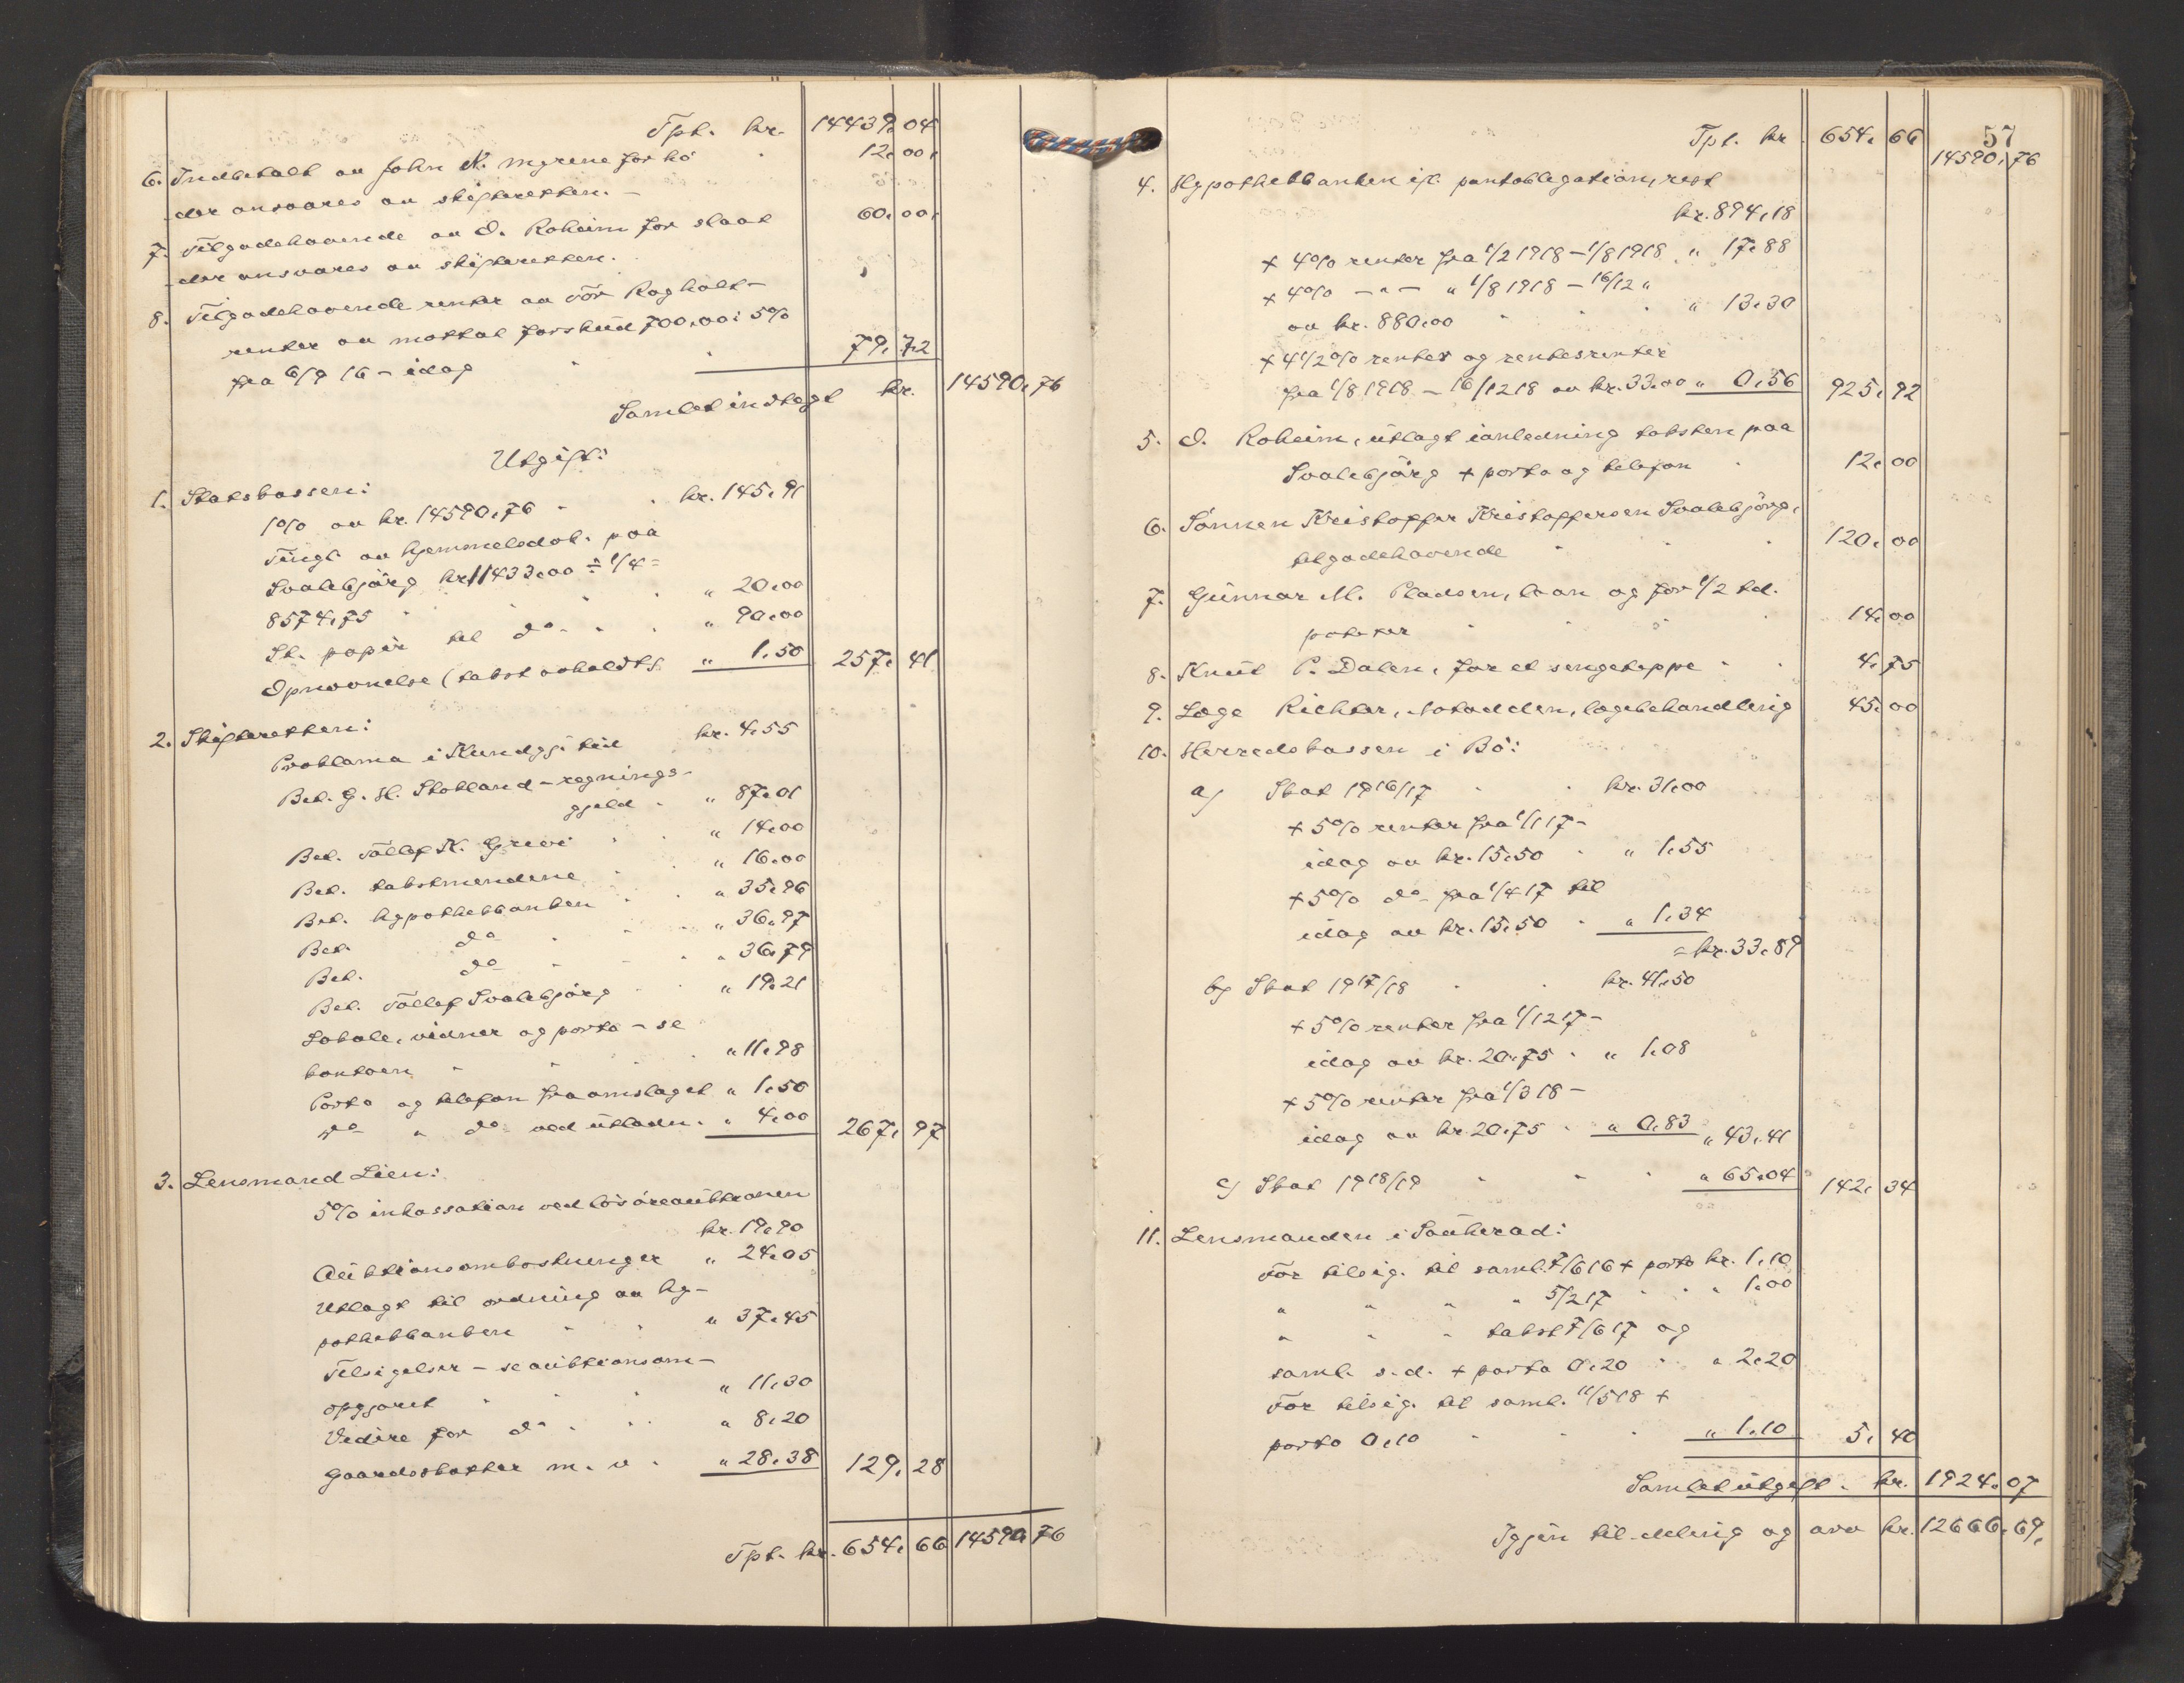 Tpt. kr. 14439,04
6. Indbetalt av John N. Myrene for hö 12,00,
der ansvares av skifteretten. -
7. Tilgodehavende av O. Roheim for slaat 60,00,
der ansvares av skifteretten.
8. Tilgodehavende renter av Tor Rogholt-
renter av mottat forskud 700,00: 5%
fra 6/9 16 - idag 79,72
Samlet indtægt kr. 14590,76
Utgift:
1. Statskassen:
1% av kr. 14590,76 kr. 145,91
Tingl. av hjemmelsdok. paa
Svalebjörg kr. 11433,00 ÷ 1/4 =
8574,75 " 20,00
St. papir til do " 90,00
Opnævnelse (takst avholdt) " 1,50 257,41
2. Skifteretten:
Proklama i Kundgj. tid kr. 4,55
Bet. G. H. Stokland - regnings-
gjeld " 87,01
Bet. Tollef K. Grivi " 14,00
Bet. takstmendene " 16,00
Bet. hypothekbanken " 35,96
Bet. do " 36,97
Bet. do " 36,79
Bet. Tollef Svalebjörg " 19,21
Lokale, vidner og porto - se
kontoen " 11,98
Porto og telefon fra omslaget " 1,50
do " do ved utlodn. " 4,00 267,97
3. Lensmand Lien:
5% inkassation ved lösöreauktionen
kr. 19,90
Auktionsomkostninger " 24,05
Utlagt til ordning av hy-
pothekbanken " 37,45
Tilsigelser - se auktionsom-
opgjöret " 11,30
Videre for do " 8,20
Gaardsskatter m. v. " 28,38 129,28
Tpt. kr. 654,66 14590,76
57
Tpt. kr. 654,66 14590,76
4. Hypothekbanken ifl. pantobligation, rest
kr. 894,18
+ 4% renter fra 1/2 1918 - 1/8 1918 " 17,88
+ 4% - " - " 1/8 1918 - 16/12 "
av kr. 880,00 " 13,30
+ 4 1/2% renter og rentesrenter
fra 1/8 1918 - 16/12 18 av kr. 33,00 " 0,56 925,92
5. O. Roheim, utlagt ianledning taksten paa
Svalebjörg + porto og telefon 12,00
6. Sönnen Kristoffer Kristoffersen Svalebjörg,
tilgodehavende 120,00
7. Gunnar M. Pladsen, laan og for 1/2 td.
poteter 14,00
8. Knut P. Dalen, for et sengeteppe 4,75
9. Læge Richter, Notodden, lægebehandling 45,00
10. Herredskassen i Bö:
a) Skat 1916/17 kr. 31,00
+ 5% renter fra 1/1 17 -
idag av kr. 15,50 " 1,55
+ 5% do fra 1/4 17 til
idag av kr. 15,50 " 1,34
= kr. 33,89
b) Skat 1917/18 kr. 41,50
+ 5% renter fra 1/12 17 -
idag av kr. 20,75 " 1,08
+ 5% renter fra 1/3 18 -
idag av kr. 20,75 " 0,83 " 43,41
c) Skat 1918/19 " 65,04 142,34
11. Lensmanden i Sauherad:
For tilsig. til saml. 7/6 16 + porto kr. 1,10
" " " " 5/2 17 " " 1,00
" " " takst 7/6 17 og
saml. s. d. + porto 0,20 " 2,20
For tilsig. til saml. 11/5 18 +
porto 0,10 " 1,10 5,40
Samlet utgift kr. 1924,07
Igjen til deling og arv kr. 12666,69,